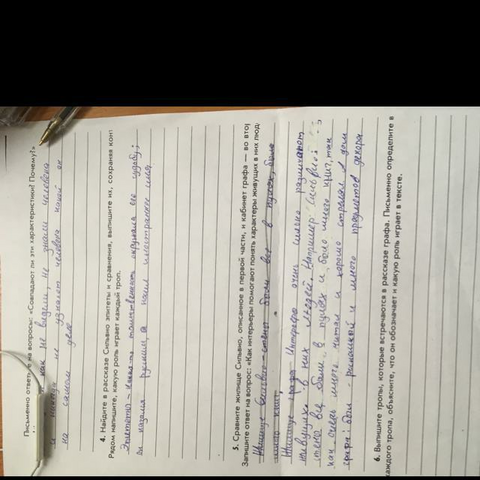 Письменно ответьте на вопросы: «Совпадают ли эти характеристики? Почему?»
как не видели, не знали человека
и потом не узнают человека какой он
на самом деле
4. Найдите в рассказе Сильвио эпитеты и сравнения, выпишите их, сохраняя конт
Рядом напишите, какую роль играет каждый троп.
Эпитеты - Какая-то таинственность окружала его судьбу;
он казался русским а носил иностранное имя
5. Сравните жилище Сильвио, описанное в первой части, и кабинет графа — во втор
Запишите ответ на вопрос: «Как интерьеры помогают понять характеры живущих в них люд
Жилище Сильвио - стены были все в пулях, было
много книг
Жилище графа Интерьер очень сильно различают
живущих в них людей. Например Сильвио:
стены все были в пулях и было много книг, так
как очень много читал и хорошо стрелял а дом
графа: был роскошный и много предметов декора.
6. Выпишите тропы, которые встречаются в рассказе графа. Письменно определите в
каждого тропа, объясните, что он обозначает и какую роль играет в тексте.